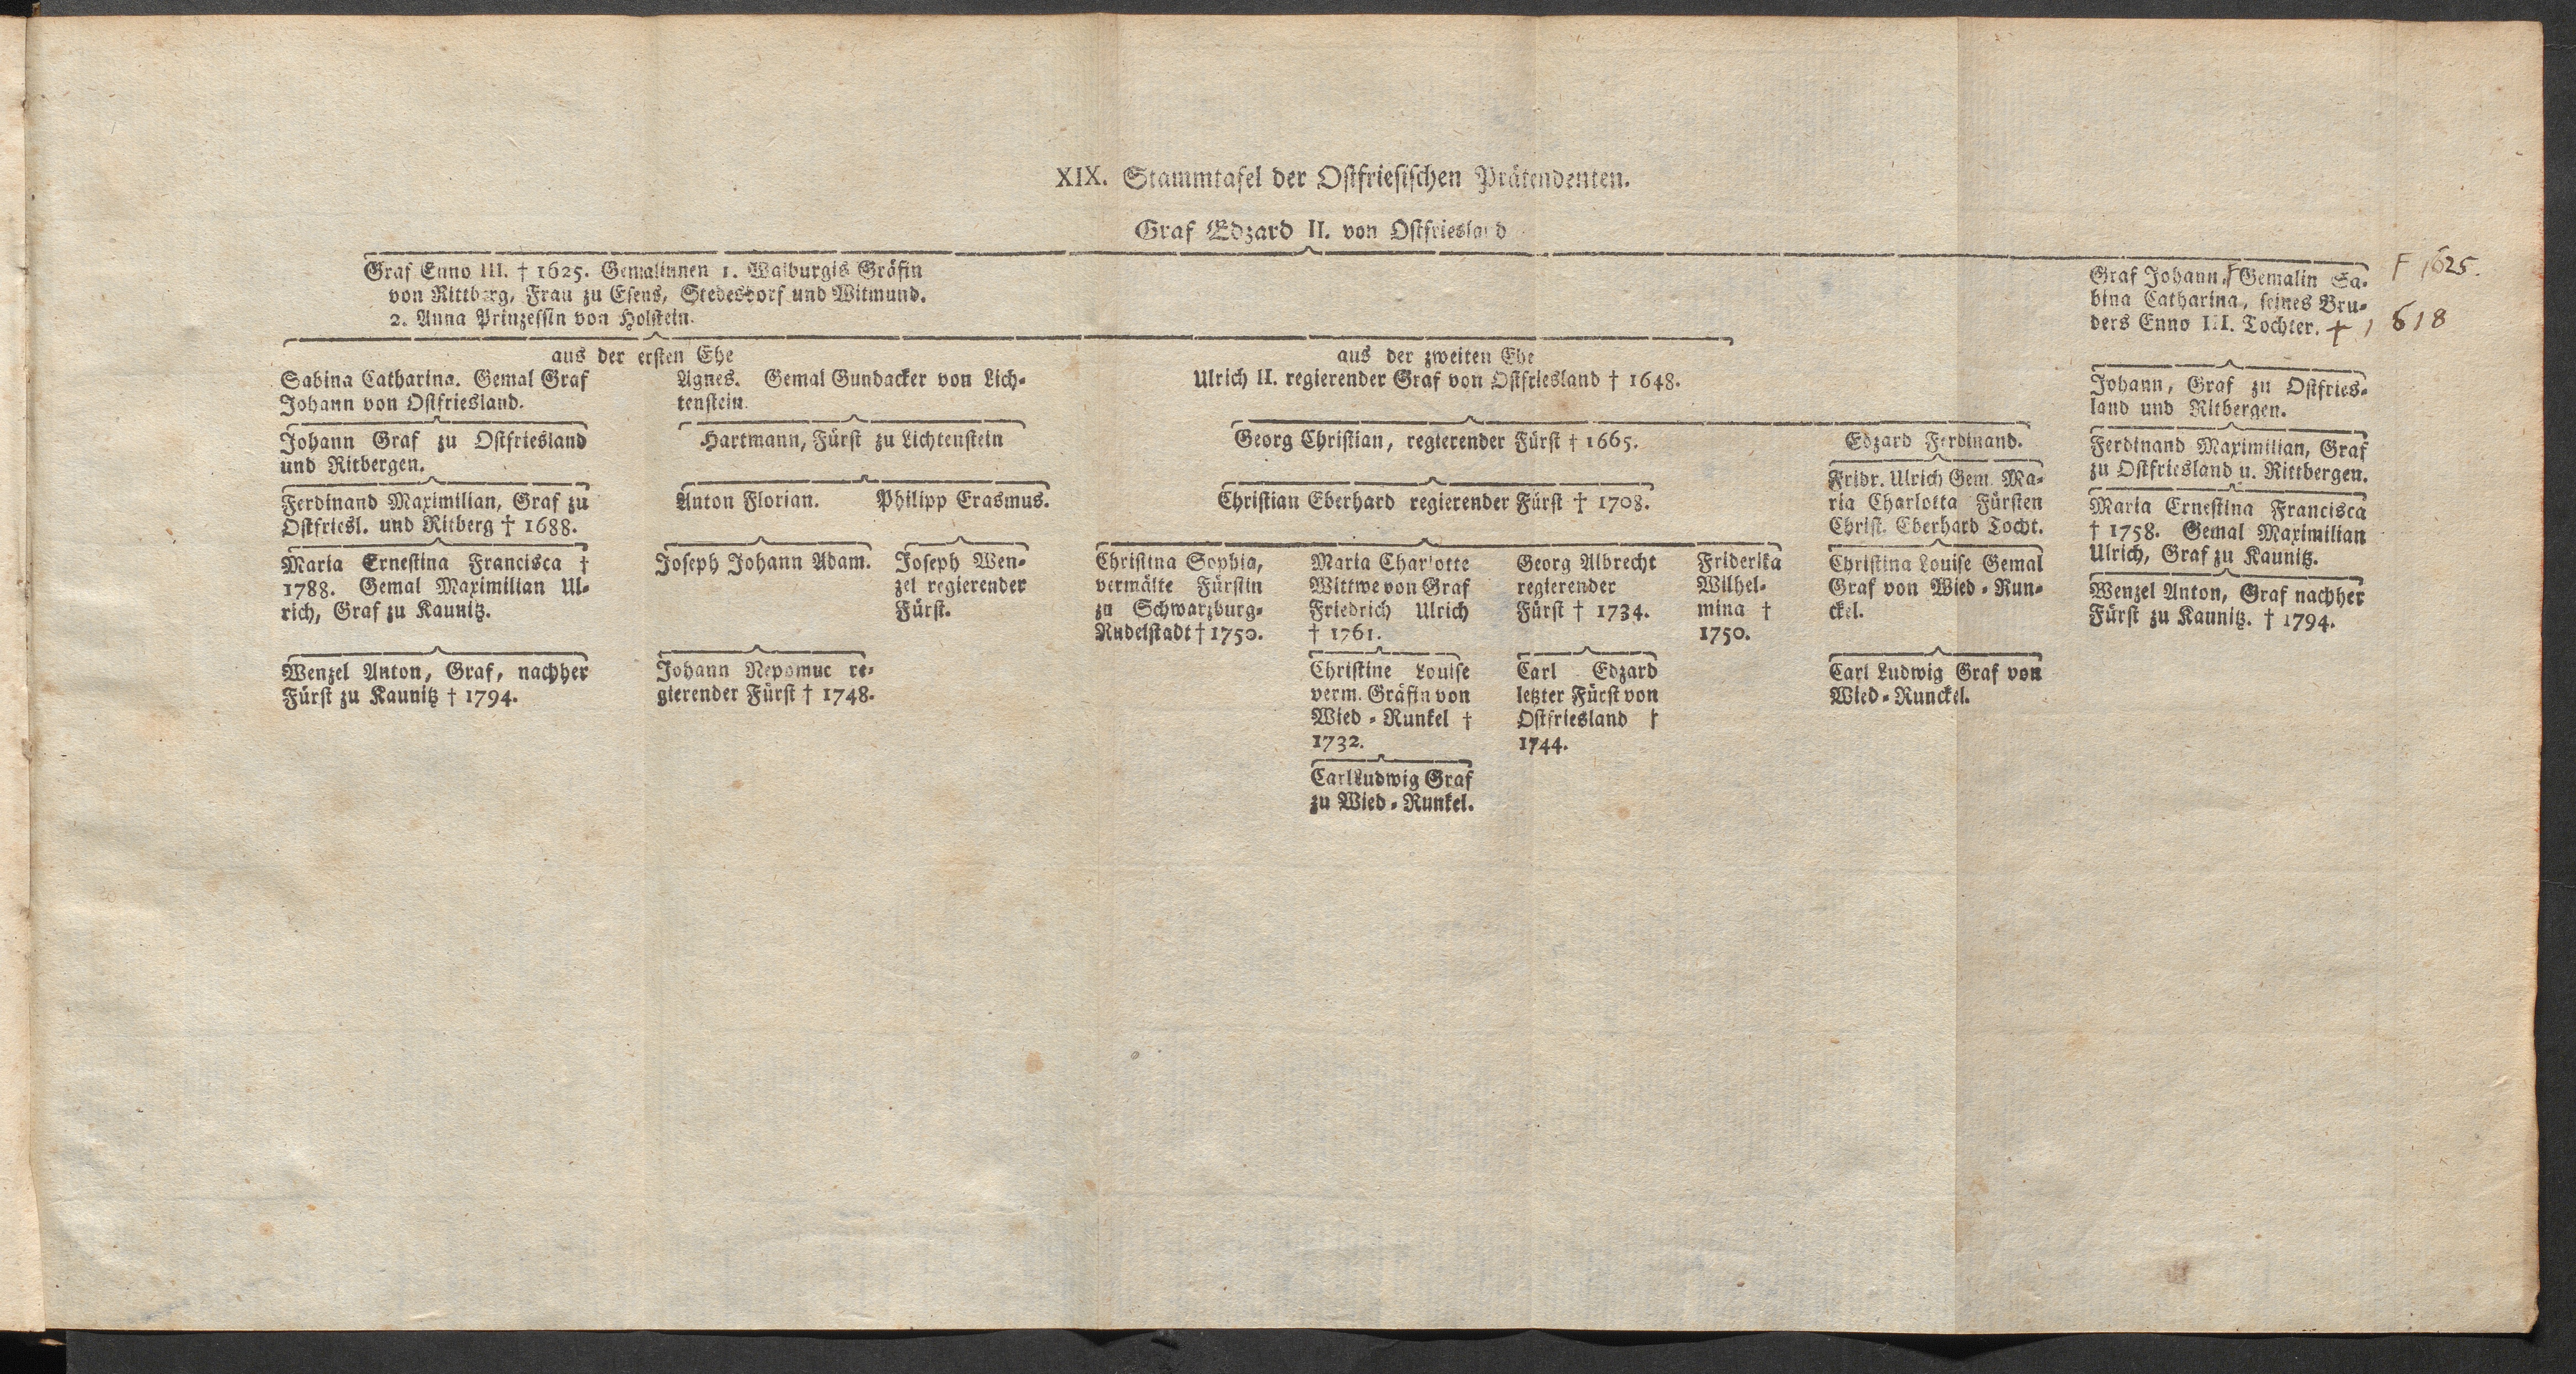 XIX. Stammtafel der Ostfriesischen Prätendenten.
Graf Edzard II. von Ostfriesland
Graf Enno III. † 1625. Gemalinnen 1. Walburgis Gräfin
von Rittberg, Frau zu Esens, Stedesdorf und Witmund.
2. Anna Prinzessin von Holstein.
Graf Johann, Gemalin Sa-
bina Catharina, seines Bru-
ders Enno III. Tochter. + 1618
F 1625.
aus der ersten Ehe
Sabina Catharina. Gemal Graf
Johann von Ostfriesland.
Johann Graf zu Ostfriesland
und Ritbergen.
Ferdinand Maximilian, Graf zu
Ostfriesl. und Ritberg † 1688.
Maria Ernestina Francisca †
1788. Gemal Maximilian Ul-
rich, Graf zu Kaunitz.
Wenzel Anton, Graf, nachher
Fürst zu Kaunitz † 1794.
Agnes. Gemal Gundacker von Lich-
tenstein.
Hartmann, Fürst zu Lichtenstein
Anton Florian.
Philipp Erasmus.
Joseph Johann Adam.
Joseph Wen-
zel regierender
Fürst.
Johann Nepomuc re-
gierender Fürst † 1748.
aus der zweiten Ehe
Ulrich II. regierender Graf von Ostfriesland † 1648.
Georg Christian, regierender Fürst † 1665.
Christian Eberhard regierender Fürst † 1708.
Christina Sophia,
vermälte Fürstin
zu Schwarzburg-
Rudelstadt † 1750.
Maria Charlotte
Wittwe von Graf
Friedrich Ulrich
† 1761.
Christine Louise
verm. Gräfin von
Wied-Runkel †
1732.
Carl Ludwig Graf
zu Wied-Runkel.
Georg Albrecht
regierender
Fürst † 1734.
Carl Edzard
letzter Fürst von
Ostfriesland †
1744.
Friderika
Wilhel-
mina †
1750.
Edzard Ferdinand.
Fridr. Ulrich Gem. Ma-
ria Charlotta Fürsten
Christ. Eberhard Tocht.
Christina Louise Gemal
Graf von Wied-Run-
ckel.
Carl Ludwig Graf von
Wied-Runckel.
Johann, Graf zu Ostfries-
land und Ritbergen.
Ferdinand Maximilian, Graf
zu Ostfriesland u. Rittbergen.
Maria Ernestina Francisca
† 1758. Gemal Maximilian
Ulrich, Graf zu Kaunitz.
Wenzel Anton, Graf nachher
Fürst zu Kaunitz. † 1794.